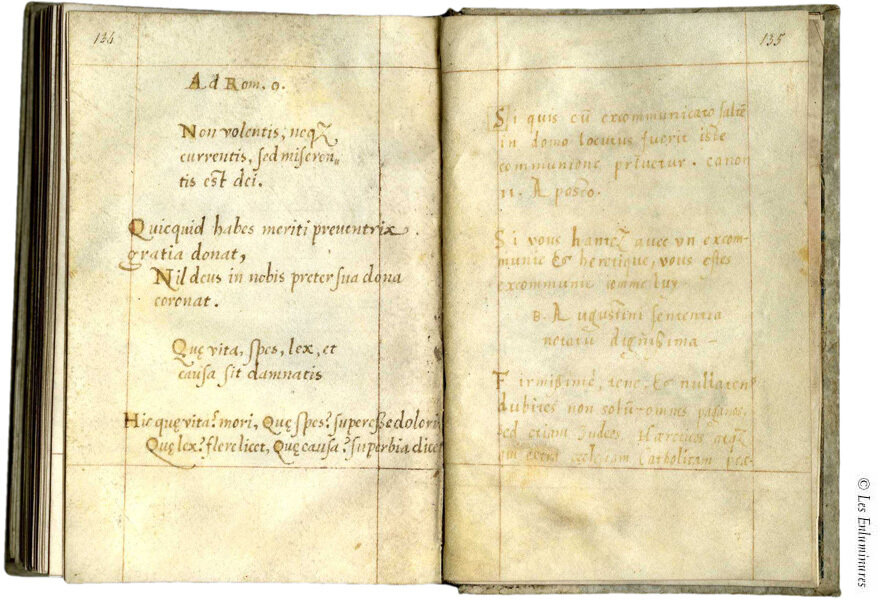 134
Ad Rom. 9.
Non volentis, neqꝫ
currentis, sed miseren„
tis est dei.
Quicquid habes meriti preventrix
gratia donat,
Nil deus in nobis preter sua dona
coronat.
Quę vita, spes, lex, et
causa sit damnatis
Hic quę vita? mori, Quę spes? superesse dolori
Quę lex? flere licet, Quę causa? superbia dicet
135
Si quis cū excommunicato saltē
in domo locutus fuerit iste
communione
canon
11. Aposto.
Si vous hantez avec un excom-
munie & heretique, vous estes
excommunie comme luy
B. Augustini sententia
notatu dignissima -
Firmissime, tene, & nullatenꝰ
dubites non solū omnes paganos,
sed etiam Iudeos Haereticos atqꝫ
ecclesiam Catholicam
© Les Enluminures